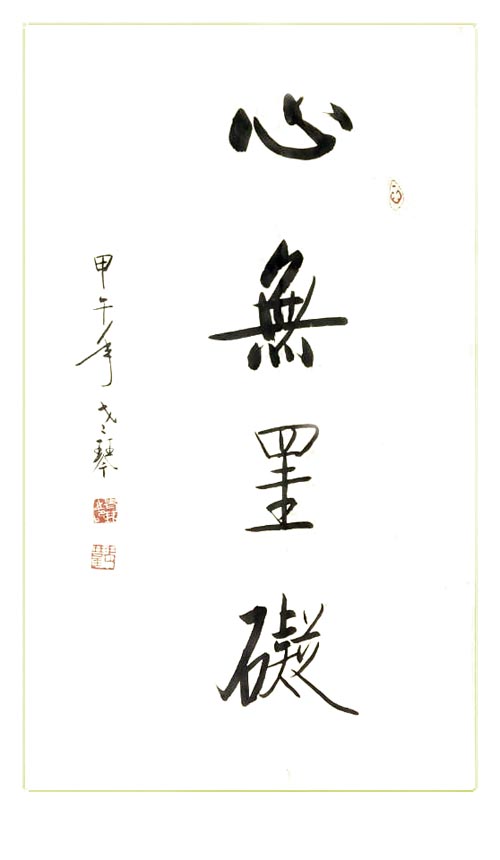 心無罣礙
甲午年 戈琴